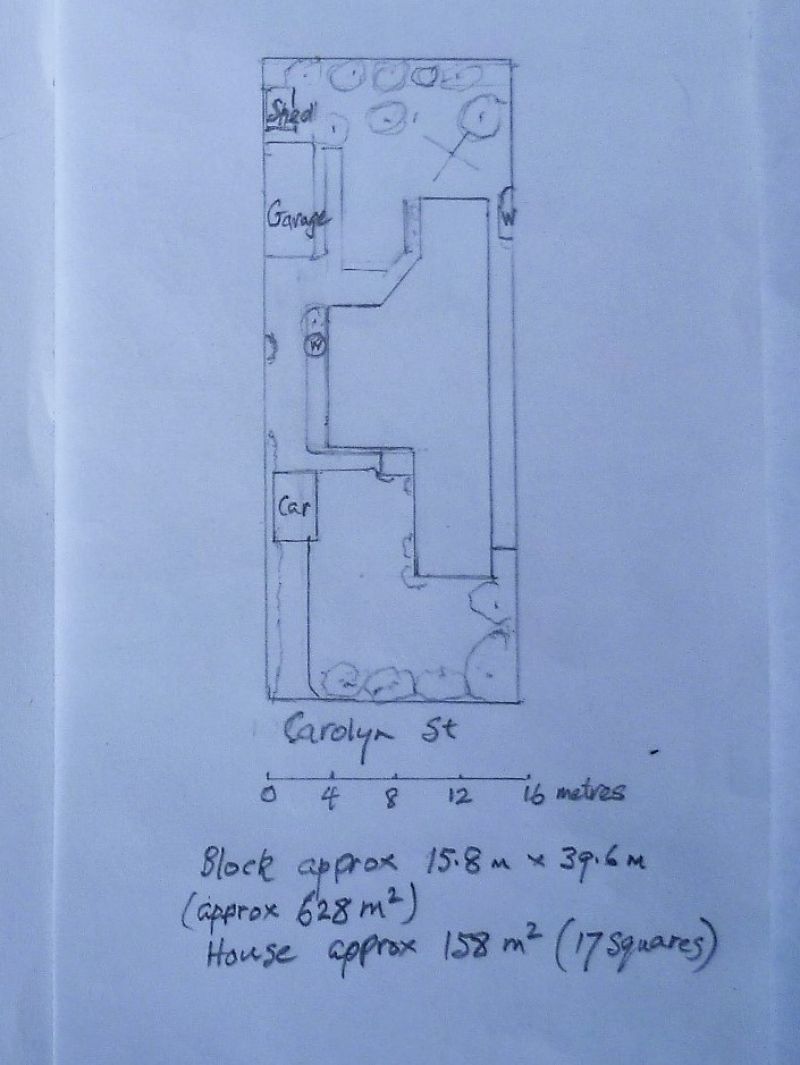 Shed
Garage
W
W
Car
Carolyn St
0 4 8 12 16 metres
Block approx 15.8 m x 39.6 m
(approx 628 m²)
House approx 158 m² (17 squares)